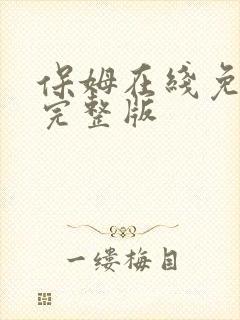 保姆在线免
完整版
一缕梅目